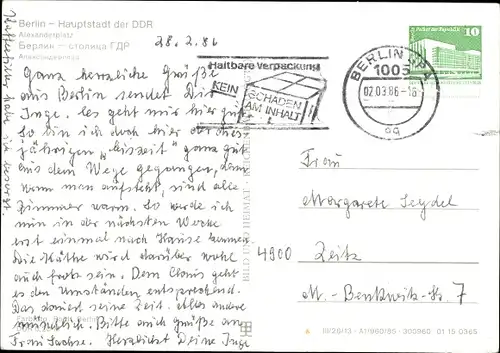 Berlin – Hauptstadt der DDR
Alexanderplatz
Берлин — столица ГДР
Александерплац
28.2.86
Haltbare Verpackung
KEIN SCHADEN AM INHALT
BERLIN BPA
1005
02.03.86-16
aq
10
Ganz herzliche Grüße
aus Berlin sendet Dir
Inge. Es geht mir hier gut.
So bin ich doch hier der dies-
jährigen „Eiszeit" ganz gut
aus dem Wege gegangen, denn
wenn man aufsteht, sind alle
Zimmer warm. So werde ich
nun in der nächsten Woche
erst einmal nach Hause kommen.
Die Käthe wird darüber wohl
auch froh sein. Dem Claus geht
es den Umständen entsprechend.
Das dauert seine Zeit. Alles andere
mündlich. Bitte auch grüße an
Frau Sachse. Herzlichst Deine Inge
habe ich besorgt.
Frau
Margarete Seydel
4900 Zeitz
M.-Benkwitz-Str. 7
BILD UND HEIMAT
III/26/13 · A1/960/85 · 300960 01 15 0365